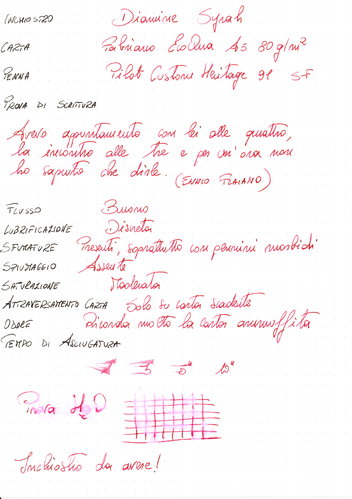 INCHIOSTRO Diamine Syrah
CARTA Fabriano EcoQua A5 80g/m²
PENNA Pilot Custom Heritage 91 S-F
PROVA DI SCRITTURA
Avevo appuntamento con lei alle quattro,
la incontro alle tre e per un'ora non
ho saputo che dirle. (ENNIO FLAIANO)
FLUSSO Buono
LUBRIFICAZIONE Discreta
SFUMATURE Presenti, soprattutto con pennini morbidi
SPIUMAGGIO Assente
SATURAZIONE Moderata
ATTRAVERSAMENTO CARTA Solo su carta scadente
ODORE Ricorda molto la carta ammuffita
TEMPO DI ASCIUGATURA
5" 10"
Prova H2O
Inchiostro da avere!